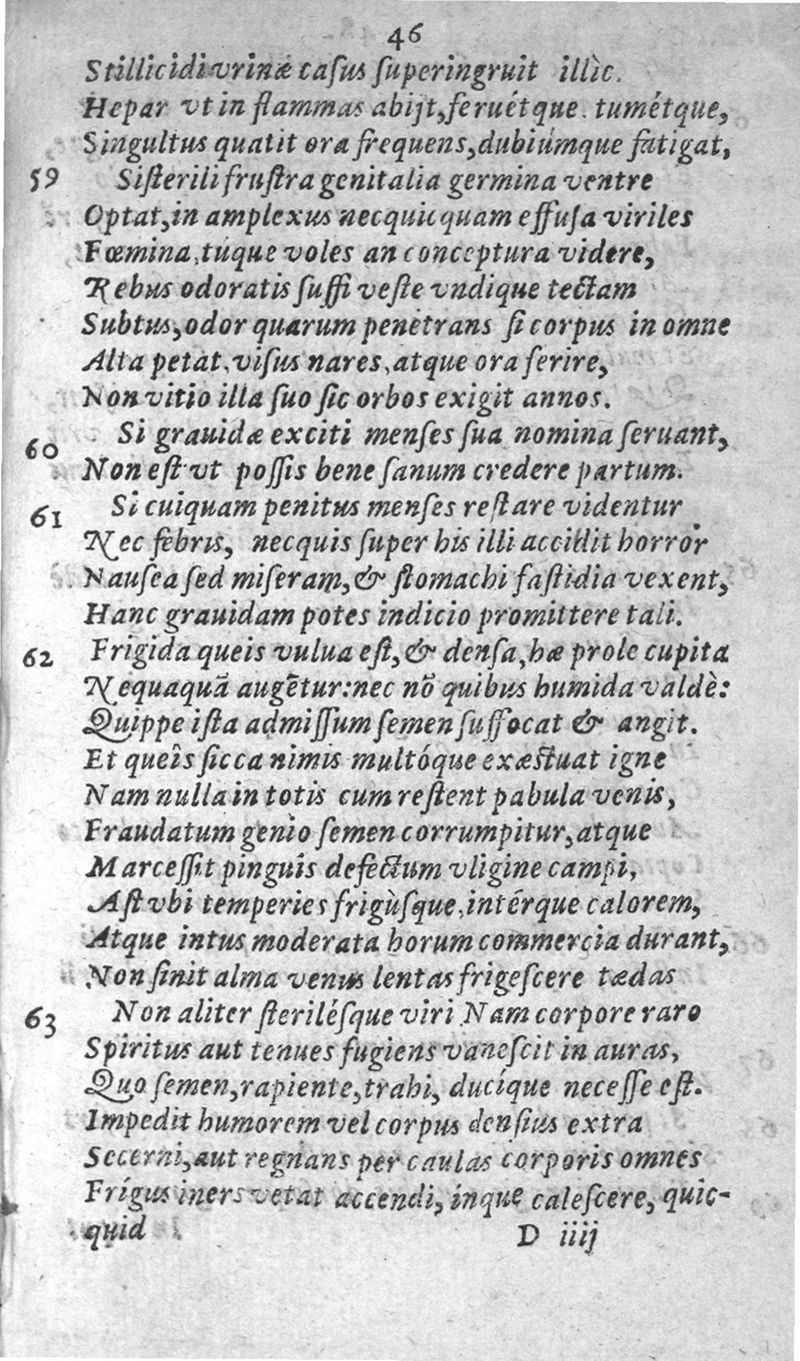 46
Stillicidi vrinæ casus superingruit illìc.
Hepar vt in flammas abijt, feruétque. tumétque,
Singultus quatit ora frequens, dubiúmque fatigat,
59 Si sterili frustra genitalia germina ventre
Optat, in amplexus necquicquam effusa viriles
Fœmina, túque voles an conceptura videre,
Rebus odoratis suffi veste vndique tectam
Subtus, odor quarum penetrans si corpus in omne
Alta petat, visus nares, atque ora ferire,
Non vitio illa suo sic orbos exigit annos.
60 Si grauidæ exciti menses sua nomina seruant,
Non est vt possis bene sanum credere partum.
61 Si cuiquam penitus menses restare videntur
Nec febris, necquis super his illi accidit horror
Nausea sed miseram, & stomachi fastidia vexent,
Hanc grauidam potes indicio promittere tali.
62 Frigida queis vulua est, & densa, hæ prole cupita
Nequaquā augētur: nec nō quibus humida valdè:
Quippe ista admissum semen suffocat & angit.
Et queîs sicca nimis multóque exæstuat igne
Nam nulla in totis cum restent pabula venis,
Fraudatum genio semen corrumpitur, atque
Marcessit pinguis defectum vligine campi,
Ast vbi temperies frigùsque, intérque calorem,
Atque intus moderata horum commercia durant,
Non sinit alma venus lentas frigescere tædas
63 Non aliter sterilésque viri Nam corpore raro
Spiritus aut tenues fugiens vanescit in auras,
Quo semen, rapiente, trahi, ducíque necesse est.
Impedit humorem vel corpus densius extra
Secerni, aut regnans per caulas corporis omnes
Frigus iners vetat accendi, ínque calescere, quic-
quid D iiij